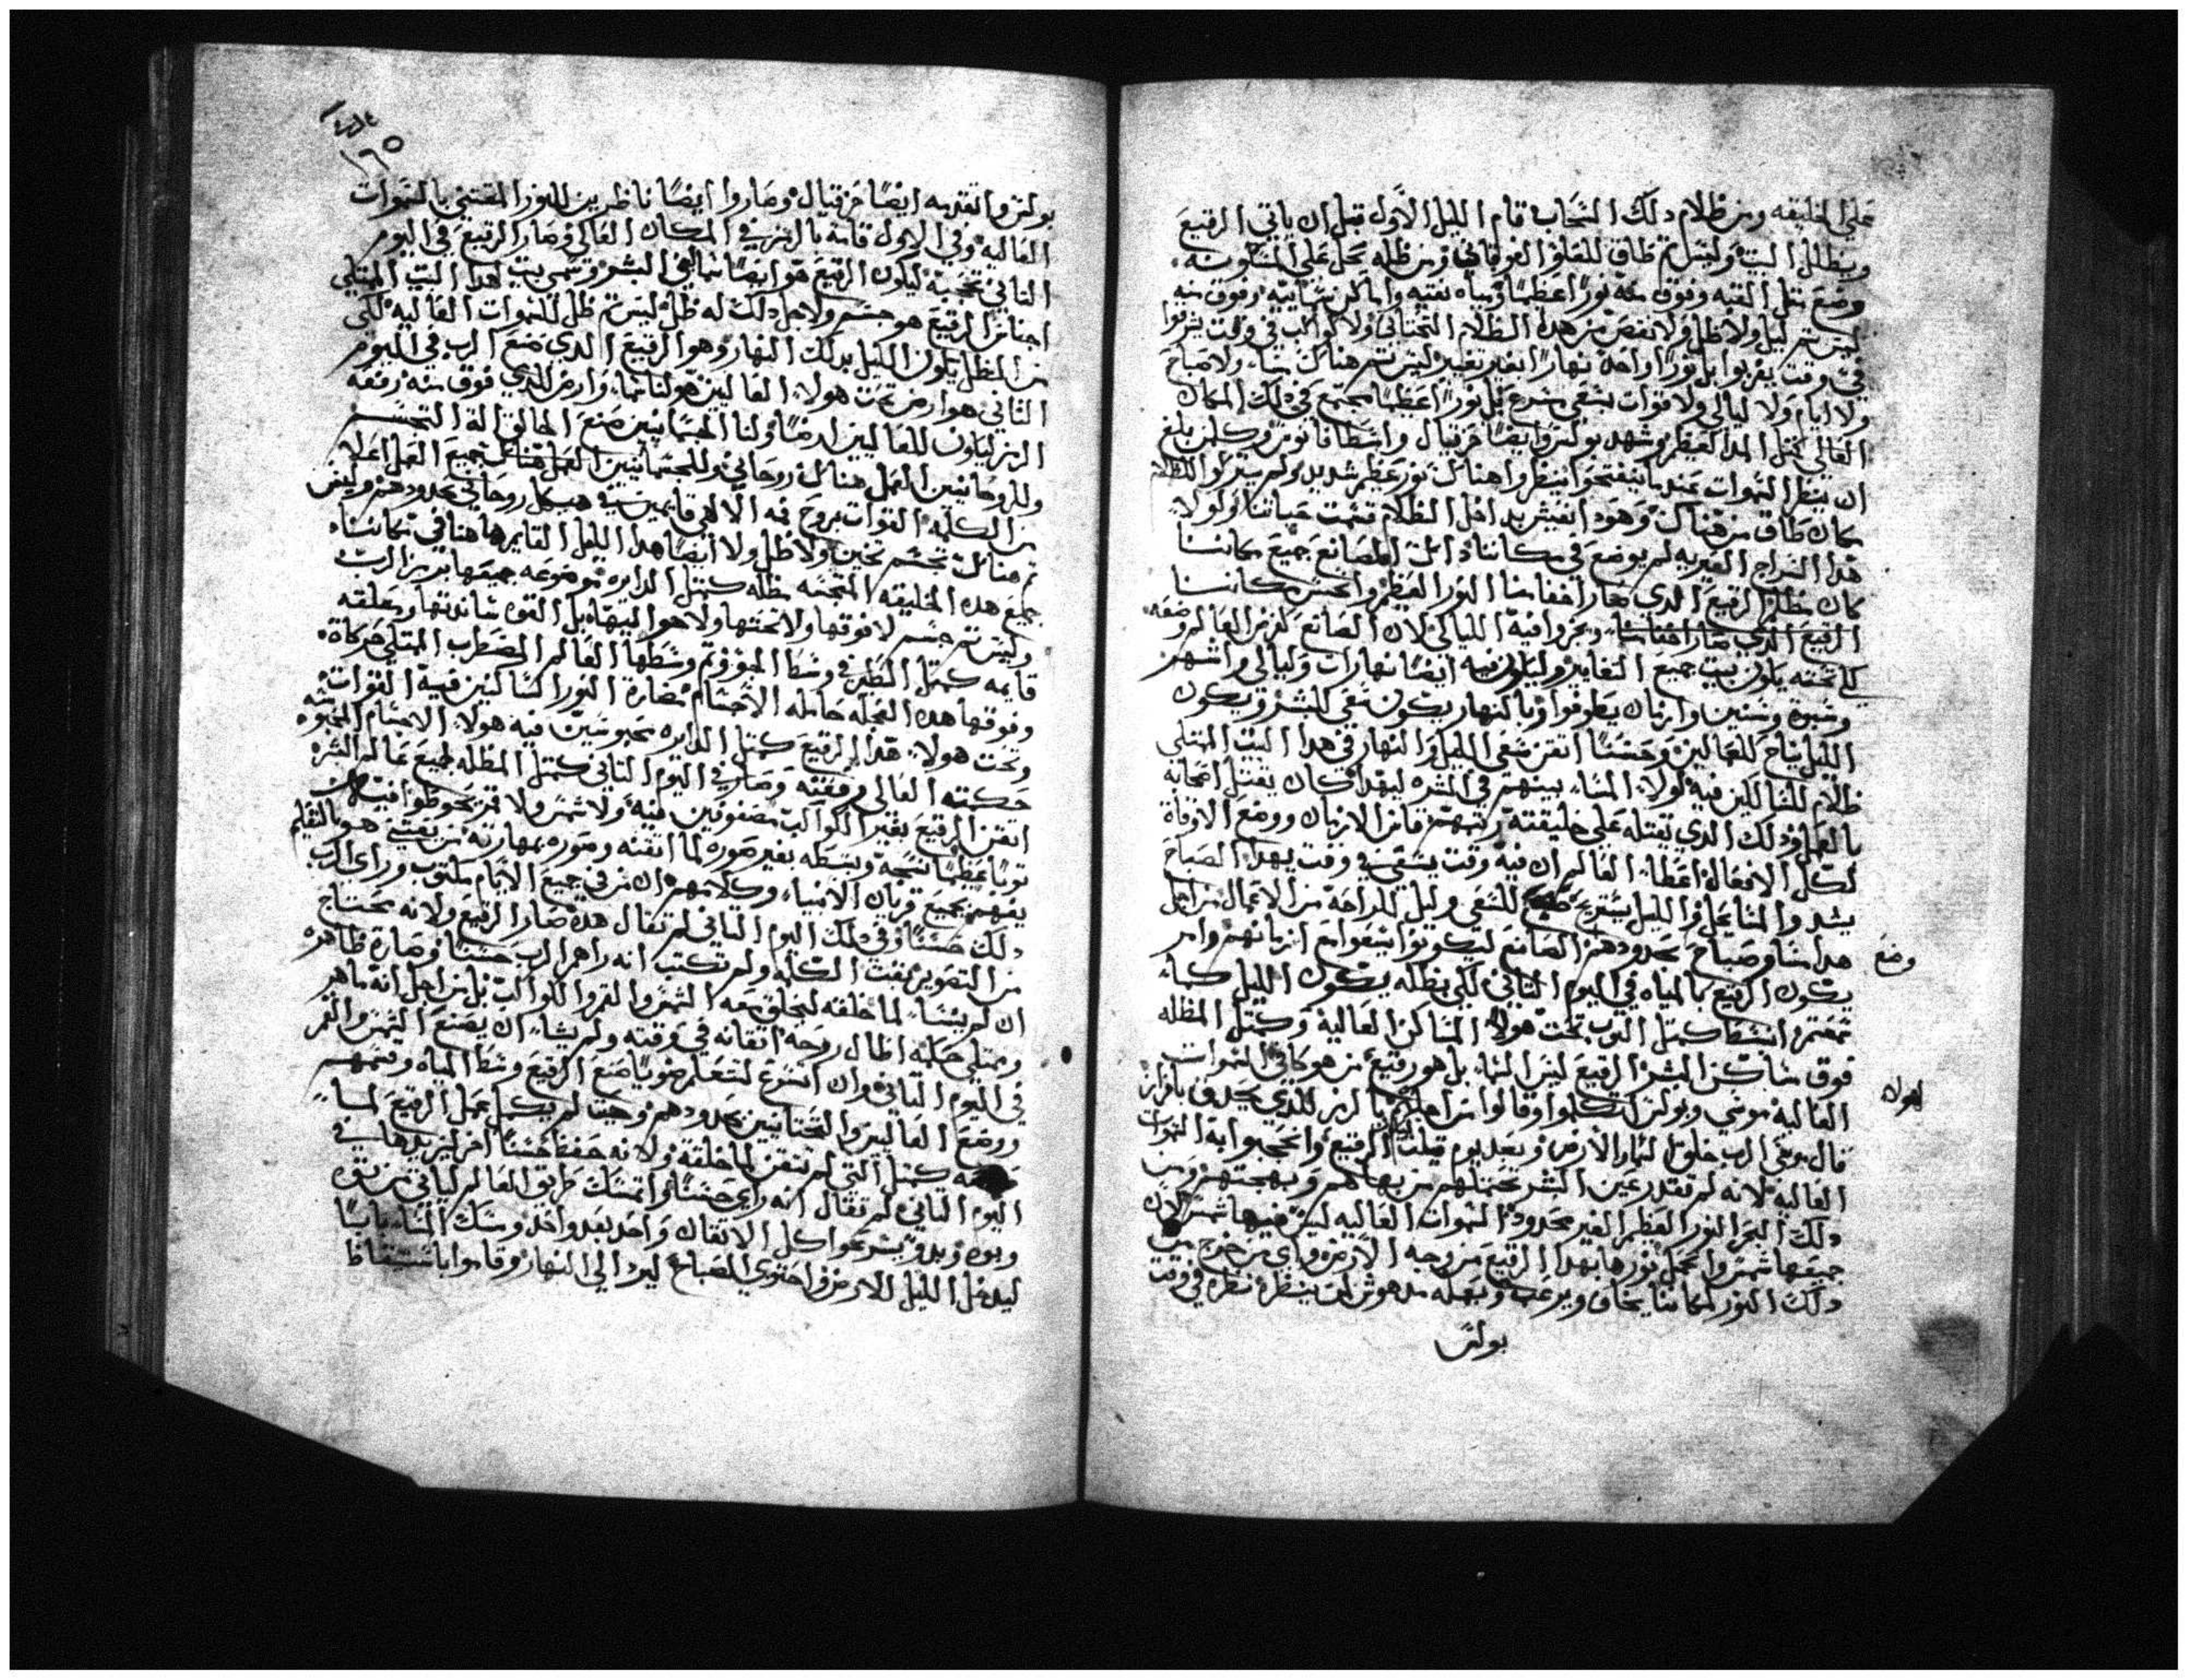 علي الخليقه ومن ظلام دلك السحاب قام الليل الاول قبل ان ياتي الرقيع
ويظلل البيت وليس تم طاق للعلو الفوقاني ومن ظله يحل علي المسكونه
وضع متل القبه وفوق منه نورًا عظيمًا ومياه نقيه واماكن نهاييه وفوق منه
ليس تم ليل ولا ظل ولا نقص من هده الظلام التحتاني ولا كواكب في وقت يشرقوا
في وقت يغربوا بل نورًا واحد نهارًا بغير تغيير ليس تم هناك مساء ولا صباح
ولا ايام ولا ليالي ولا قوات بسعي مسرع بل نورًا عظيمًا مجتمع في دلك المكان
العالي كمتل المدا العظيم وشهد بولس وايضًا حزقيال واسطافانوس وكلمن بلغ
ان ينظر السموات عندما ينفتحوا ينظروا هناك نور عظيم شديد ولم يتركوا الظلام
مكان طاق من هناك وهودا نعيش بداخل الظلام تتمت حياتنا ولولا
هدا السراج الغيريه لم يوضع في مكاننا دائك المصانع جميع مكاننا
كان مظلم الرقيع الدي صار اخفا منا النور العظيم واحسن مكاننا
الرقيع الدي صار اخفا منا ويجروا فيه الليالي لان الصانع كنز العالم وضعه
لكي تحته يكون بيت جميع التغايير وليكون فيه ايضًا نهارات وليالي واشهر
وسبوه وسنين وازمان يطوفوا وبالنهار يكون سعي للبشر ويكون
الليل نياح للعمالين وحسنًا اتقن سعي الليل والنهار في هدا البيت الممتلي
ظلام للعمالين فيه لولا المساء بينهم في المشره ليهدا كان يقتل اصحابه
بالعمل ودلك الدي تقتله علي خليقته رتبهم قاس الازمان ووضع الاوقاة
لكل الافعال اعطا العالم ان فيه وقت يسعي في وقت يهدا الصباح
يشد والمسا يحل والليل يستريح للسعي وليل للراحه من الاعمال من اجل
هدا مسا وصباح يحدودهم الصانع ليكونوا ينفعوا مع ازمانهم وامر
وضع
يكون الرقيع بالمياه في اليوم التاني لكي بظله يكون الليل كما
تمتم وانبسط كمتل التوب تحت هولا المساكن العاليه وكمتل المظله
فوق مساكن البشر الرقيع ليس السماء بل هو رقيع من هو كافي السموات
لهولاء
العاليه موسي وبولس اتكلموا وقالوا من اجلهم بالرمز للدي يحدق باقرار
قال موسي الرب خلق السماء والارض وبعد يوم قيلت الرقيع وانحجبوا به السموات
العاليه لانه لم تقدر عين البشر تحتملهم من بهاهم وبهجتهم ومن
دلك البحر النور العظيم الغير محدود السموات العاليه ليس فيها شمس لان
جميعها شمس واعجل نورها بهدا الرقيع من وجه الارض واي من خرج من
دلك النور لمكاننا يخاف ويرعب وبعله مدهوش لمن ينظره نظره في وقت
بولس
١٦٥
بولس وما تقدمه ايضًا حزقيال وصاروا ايضًا ناظرين للنور المقتني بالسموات
العاليه وفي الاول قامة بالرمز في المكان العالي وصار الرقيع في اليوم
التاني تحجبه ليكون الرقيع هو ايضًا سما لبني البشر وسميت لهدا البيت الممتلي
اجناس الرقيع هو جسم ولاجل دلك له ظل ليس تم ظل للسموات العاليه لكي
من المظل يكون الليل بدلك النهار وهو الرقيع الدي صنع الرب في اليوم
التاني هو ارض تحت هولا العاليين هو لنا سما وارض للدي فوق منه رفعه
الرمز ليكون للعاليين ارضًا ولنا الجسمانيين صنع الخالق اله التجسم
وللروحانيين العمل هناك روحاني وللجسمانيين العمل هناك بجميع العمل اعلا
من الكلمه القوات بروح فمه الالهي قايمين في هيكل روحاني يحدودهم وليس
تم هناك تجسم تخين ولا ظل ولا ايضًا هدا الليل القايم هاهنا في مكاننا
جميع هده الخليقه المتجسمه مظله كمتل الدايره موضوعه جميعها برمز الرب
وليس تم جسم لا فوقها ولا تحتها ولا هو اليتها بل القوه ساندتها ومعلقه
قايمه كمتل الطير في وسط الجو وتم وسطها العالم المضطرب الممتلي حركاة
وفوقها هده العجله حامله الاجسام مضارة النور الساكنين فيه القوات
وتحت هولا هدا الرقيع كمتل الدايره محبوسين فيه هولا الاجسام المحبوسه
حكمته العالي رفعته وصار في اليوم التاني كمتل المظله لجميع عالم الشره
اتقن الرقيع بغير الكواكب مصفوفين فيه ولا شمس ولا قمر يحوطوا فيه
توبًا عظيمًا نسجه وبسطه بغير صوره لما اتقنه وصوره بمهارته من يقتني هو بالتعليم
يفهم بجميع قريان الانبياء وكلامهم ان من في جميع الايام مكتوب وراي الرب
دلك حسنًا وفي دلك اليوم التاني لم تقال هده صار الرقيع ولانه محتاج
من التصوير بقت الكلمه ولم تكتب انه راهم الرب حسنًا وصارة ظاهره
ان لم يشاء لما خلقه ليخلق معه الشمس والقمر والكواكب بل من اجل انه ماهر
وممتلي حكمه اطال روحه اتقانه في وقته ولم يشاء ان يصنع الشمس والقمر
في اليوم التاني وان اسرع لتتعلم ضويًا صنع الرقيع وسط المياه وقسمهم
ووضع العاليين والتحتانيين يحدودهم وحيت لم يكمل عمل الرقيع لمسا
كمتل التي لم تتقن لما خلقه ولانه حفظ حسنًا اخر ليزيدها في
اليوم التاني لم تقال انه راي حسنًا واتمسك طريق العالم لياتي من نوه
وبوه وبدو يسرعوا كل الاتقان واحد بعد واحد ومسك المساء يابسًا
ليدخل الليل للارض واحتوي الصباح ليرد الي النهار وقاموا باستيقاظ